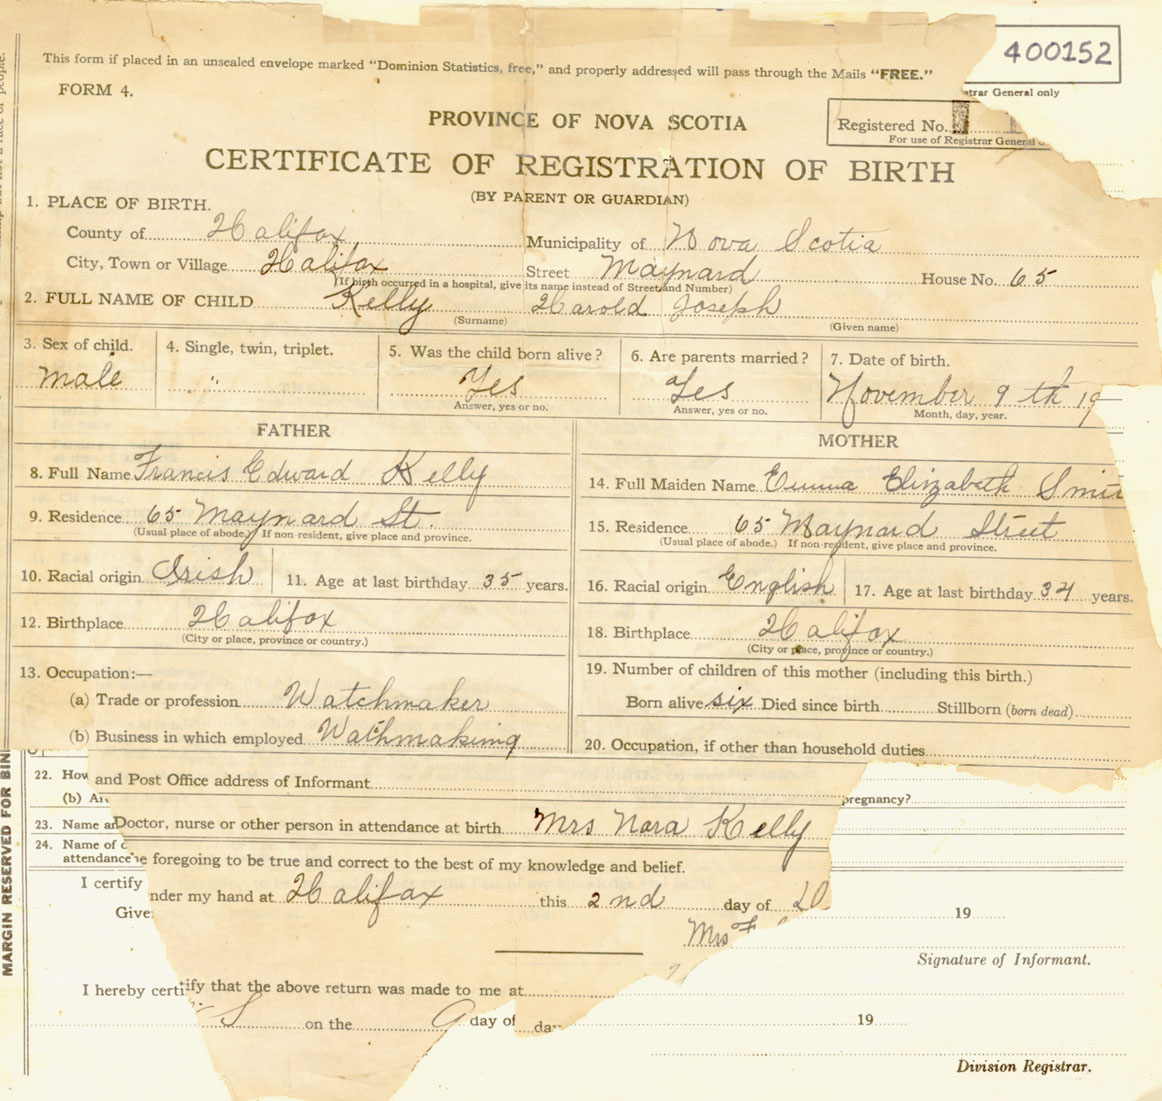 400152
This form if placed in an unsealed envelope marked "Dominion Statistics, free," and properly addressed will pass through the Mails "FREE."
FORM 4.
trar General only
PROVINCE OF NOVA SCOTIA
Registered No.
For use of Registrar General
CERTIFICATE OF REGISTRATION OF BIRTH
(BY PARENT OR GUARDIAN)
1. PLACE OF BIRTH.
County of Halifax Municipality of Nova Scotia
City, Town or Village Halifax Street Maynard House No. 65
(If birth occurred in a hospital, give its name instead of Street and Number)
2. FULL NAME OF CHILD Kelly Harold Joseph
(Surname) (Given name)
3. Sex of child. 4. Single, twin, triplet. 5. Was the child born alive? 6. Are parents married? 7. Date of birth.
Male " Yes Yes November 9th 19
Answer, yes or no. Answer, yes or no. Month, day, year.
FATHER MOTHER
8. Full Name Francis Edward Kelly
14. Full Maiden Name Emma Elizabeth
9. Residence 65 Maynard St.
(Usual place of abode.) If non-resident, give place and province.
15. Residence 65 Maynard Street
(Usual place of abode.) If non-resident, give place and province.
10. Racial origin Irish 11. Age at last birthday 35 years.
16. Racial origin English 17. Age at last birthday 34 years.
12. Birthplace Halifax
(City or place, province or country.)
18. Birthplace Halifax
(City or place, province or country.)
13. Occupation:—
(a) Trade or profession Watchmaker
(b) Business in which employed Wathmaking
19. Number of children of this mother (including this birth.)
Born alive six Died since birth Stillborn (born dead)
20. Occupation, if other than household duties
22. How and Post Office address of Informant
(b) pregnancy?
23. Name Doctor, nurse or other person in attendance at birth Mrs Nora Kelly
24. Name of
attendance e foregoing to be true and correct to the best of my knowledge and belief.
I certify
Give nder my hand at Halifax this 2nd day of 19
Mrs
Signature of Informant.
I hereby certi tify that the above return was made to me at
on the day of da 19
Division Registrar.
MARGIN RESERVED FOR BIN